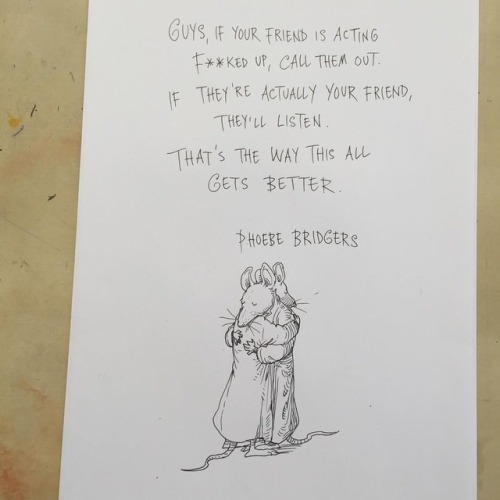 GUYS, IF YOUR FRIEND IS ACTING
F**KED UP, CALL THEM OUT.
IF THEY'RE ACTUALLY YOUR FRIEND,
THEY'LL LISTEN.
THAT'S THE WAY THIS ALL
GETS BETTER.
PHOEBE BRIDGERS